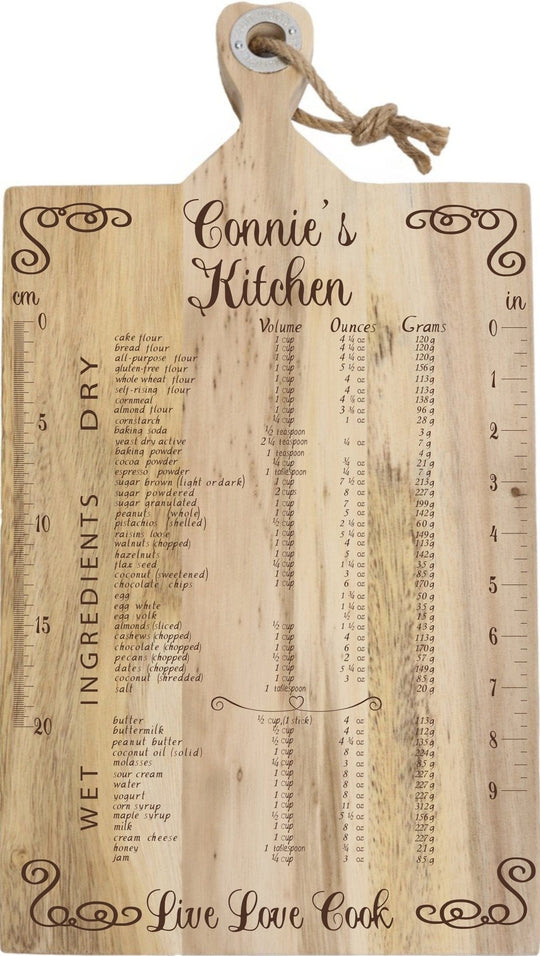 Connie's
Kitchen
cm
in
Volume Ounces Grams
DRY INGREDIENTS
cake flour 1 cup 4 ¼ oz 120g
bread flour 1 cup 4 ¼ oz 120g
all-purpose flour 1 cup 4 ¼ oz 120g
gluten-free flour 1 cup 5 ½ oz 156g
whole wheat flour 1 cup 4 oz 113g
self-rising flour 1 cup 4 oz 113g
cornmeal 1 cup 4 ⅞ oz 138g
almond flour 1 cup 3 ⅜ oz 96g
cornstarch ¼ cup 1 oz 28g
baking soda ½ teaspoon 3g
yeast dry active 2 ¼ teaspoon ¼ oz 7g
baking powder 1 teaspoon 4g
cocoa powder ¼ cup ¾ oz 21g
espresso powder 1 tablespoon ¼ oz 7g
sugar brown (light or dark) 1 cup 7 ½ oz 213g
sugar powdered 2 cups 8 oz 227g
sugar granulated 1 cup 7 oz 199g
peanuts (whole) 1 cup 5 oz 142g
pistachios (shelled) ½ cup 2 ⅛ oz 60g
raisins loose 1 cup 5 ¼ oz 149g
walnuts (chopped) 1 cup 4 oz 113g
hazelnuts 1 cup 5 oz 142g
flax seed ¼ cup 1 ¼ oz 35g
coconut (sweetened) 1 cup 3 oz 85g
chocolate chips 1 cup 6 oz 170g
egg 1 ¾ oz 50g
egg white 1 ¼ oz 35g
egg yolk ½ oz 15g
almonds (sliced) ½ cup 1 ½ oz 43g
cashews (chopped) 1 cup 4 oz 113g
chocolate (chopped) 1 cup 6 oz 170g
pecans (chopped) ½ cup 2 oz 57g
dates (chopped) 1 cup 5 ¼ oz 149g
coconut (shredded) 1 cup 3 oz 85g
salt 1 tablespoon 20g
WET
butter ½ cup,(1 stick) 4 oz 113g
buttermilk ½ cup 4 oz 112g
peanut butter ½ cup 4 ¾ oz 135g
coconut oil (solid) 1 cup 8 oz 224g
molasses ¼ cup 3 oz 85g
sour cream 1 cup 8 oz 227g
water 1 cup 8 oz 227g
yogurt 1 cup 8 oz 227g
corn syrup 1 cup 11 oz 312g
maple syrup ½ cup 5 ½ oz 156g
milk 1 cup 8 oz 227g
cream cheese 1 cup 8 oz 227g
honey 1 tablespoon ¾ oz 21g
jam ¼ cup 3 oz 85g
0
5
10
15
20
0
1
2
3
4
5
6
7
8
9
Live Love Cook